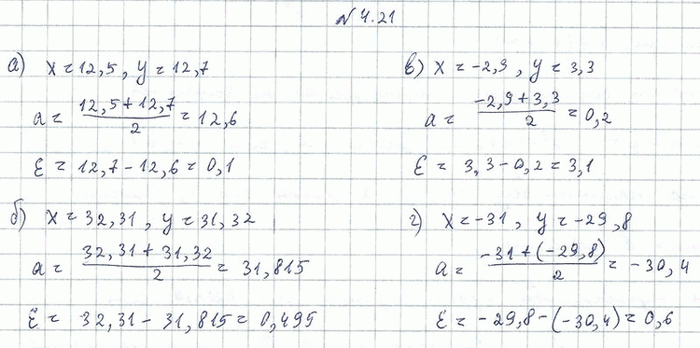 № 4.21
а) x = 12,5, y = 12,7
a = (12,5 + 12,7)/2 = 12,6
ε = 12,7 - 12,6 = 0,1
б) x = 32,31, y = 31,32
a = (32,31 + 31,32)/2 = 31,815
ε = 32,31 - 31,815 = 0,495
в) x = -2,9, y = 3,3
a = (-2,9 + 3,3)/2 = 0,2
ε = 3,3 - 0,2 = 3,1
г) x = -31, y = -29,8
a = (-31 + (-29,8))/2 = -30,4
ε = -29,8 - (-30,4) = 0,6